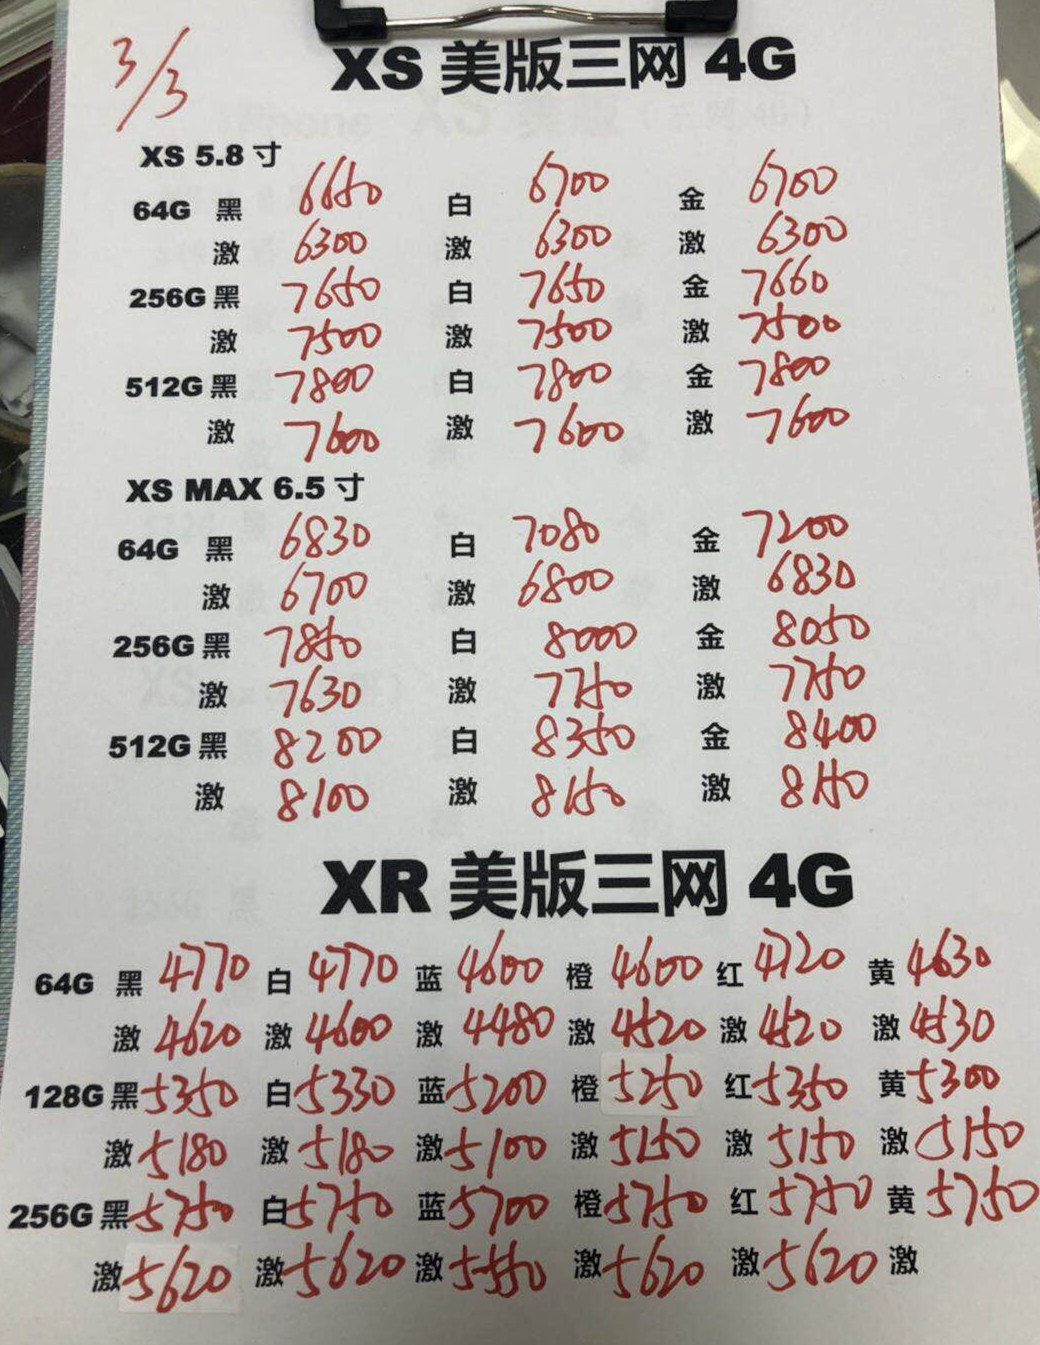 3/3
XS 美版三网 4G
XS 5.8 寸
64G 黑 6650 白 6700 金 6700
激 6300 激 6300 激 6300
256G 黑 7650 白 7650 金 7660
激 7500 激 7500 激 7500
512G 黑 7800 白 7800 金 7800
激 7600 激 7600 激 7600
XS MAX 6.5 寸
64G 黑 6830 白 7080 金 7200
激 6700 激 6800 激 6830
256G 黑 7850 白 8000 金 8050
激 7630 激 7750 激 7750
512G 黑 8200 白 8350 金 8400
激 8100 激 8150 激 8150
XR 美版三网 4G
64G 黑 4770 白 4770 蓝 4600 橙 4600 红 4720 黄 4630
激 4620 激 4600 激 4480 激 4520 激 4520 激 4530
128G 黑 5350 白 5330 蓝 5200 橙 5250 红 5350 黄 5300
激 5180 激 5180 激 5100 激 5150 激 5150 激 5150
256G 黑 5750 白 5750 蓝 5700 橙 5750 红 5750 黄 5750
激 5620 激 5620 激 5550 激 5620 激 5620 激